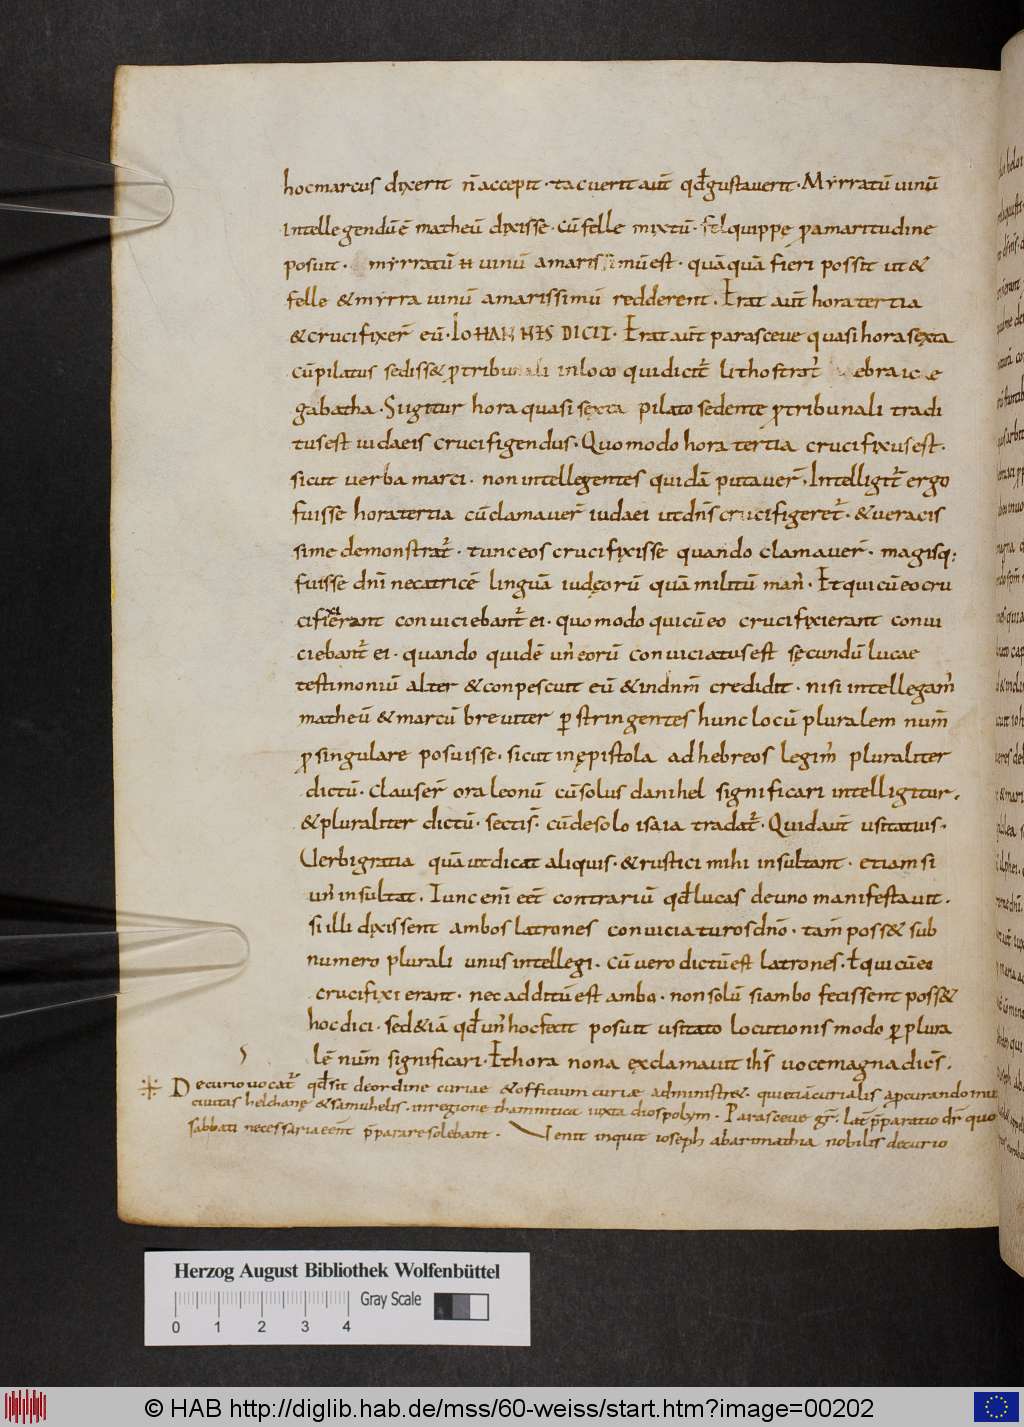 hocmarcus dixerit n̄ accepit · tacuerit aut̄ qd̄ gustauerit · Myrratū uinū
intellegendū ē matheū dixisse · cū felle mixtū · fel quippe ꝓ amaritudine
posuit · myrratū uinū amarissimū est · quāquā fieri possit ut &
felle & myrra uinū amarissimū redderent . Erat aut̄ hora tertia
& crucifixer̄ eū · IOHANNES DICIT · Erat aut̄ parasceue quasi hora sexta
cū pilatus sediss& ꝓ tribunali in loco qui dicit᷑ lithostrat᷑ ebraice
gabatha · Si igitur hora quasi sexta pilato sedente ꝓ tribunali tradi
tus est iudaeis crucifigendus · Quomodo hora tertia crucifixus est ·
sicut uerba marci · non intellegentes quidā putauer̄ · Intelligit᷑ ergo
fuisse hora tertia cū clamauer̄ iudaei ut dn̄s crucifigeret᷑ · & ueracis
sime demonstrat᷑ · tunc eos crucifixisse quando clamauer̄ · magisq;
fuisse dn̄i necatricē linguā iudęorū quā militū man᷒ · Et qui cū eo cru
cifixerant conuiciebant᷑ ei · quomodo qui cū eo crucifixierant conui
ciebant᷑ ei · quando quidē un᷒ eorū conuiciatus est secundū lucae
testimoniū alter & conpescuit eū & in dn̄m credidit · nisi intellegam᷒
matheū & marcū breuiter ꝑstringentes hunc locū pluralem num̄
ꝓ singulare posuisse · sicut in epistola ad hebreos legim᷒ pluraliter
dictū · clauser̄ ora leonū cū solus danihel significari intelligitur ·
& pluraliter dictū · sectis̄ · cū de solo isaia tradat᷑ · Quid aut̄ usitatius ·
Uerbi gratia quā ut dicat aliquis · & rustici mihi insultant · etiam si
un᷒ insultat · Tunc eni᷒ eēt contrariū qd̄ lucas de uno manifestauit ·
si illi dixissent ambos latrones conuiciaturos dn̄o · tam̄ poss& sub
numero plurali unus intellegi · cū uero dictū est latrones · t qui cū eo
crucifixi erant · nec additū est ambo · non solū si ambo fecissent poss&
hoc dici · sed & iā qd̄ un᷒ hoc fecit posuit usitato locutionis modo ꝑ plura
lē num̄ significari · Et hora nona exclamauit ih̄s uoce magna dicēs ·
Decurio uocat᷑ qd̄ sit de ordine curiae & officium curiae administr& · qui etiā curialis a ꝓcurando mu
ciuitas helchanę & samuhelis · in regione thamnitica iuxta diospolym · Parasceue gr̄ · lat̄ p̄paratio dr̄ quo
sabbati necessaria eēnt p̄parare solebant · Uenit inquit ioseph abarimathia nobilis decurio
Herzog August Bibliothek Wolfenbüttel
Gray Scale
0 1 2 3 4
© HAB http://diglib.hab.de/mss/60-weiss/start.htm?image=00202